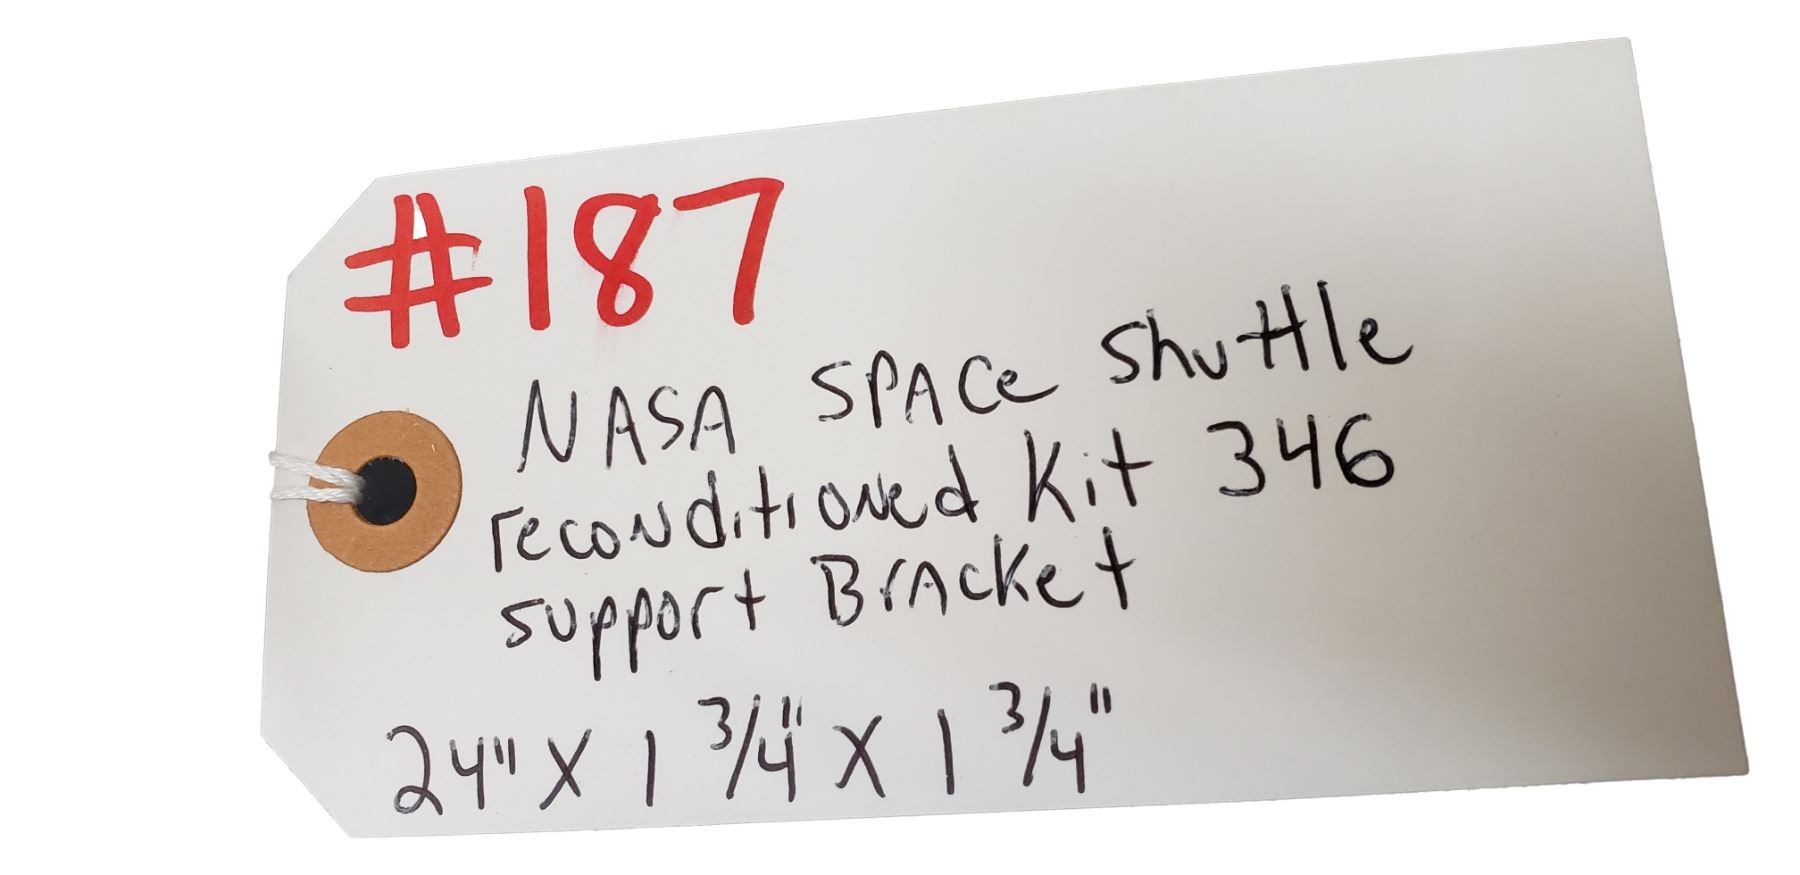 #187
NASA SPACe Shuttle
reconditioned Kit 346
support BrAcket
24" X 1 3/4" X 1 3/4"